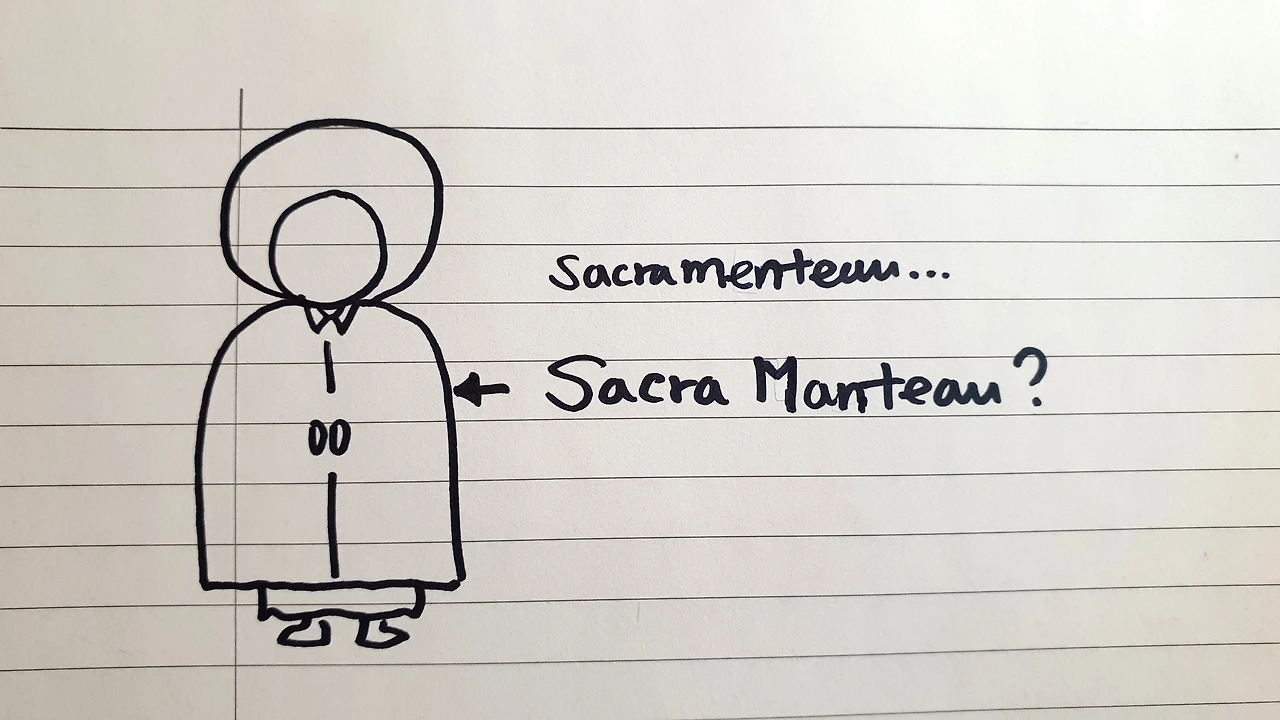 Sacramenteau...
Sacra Manteau?